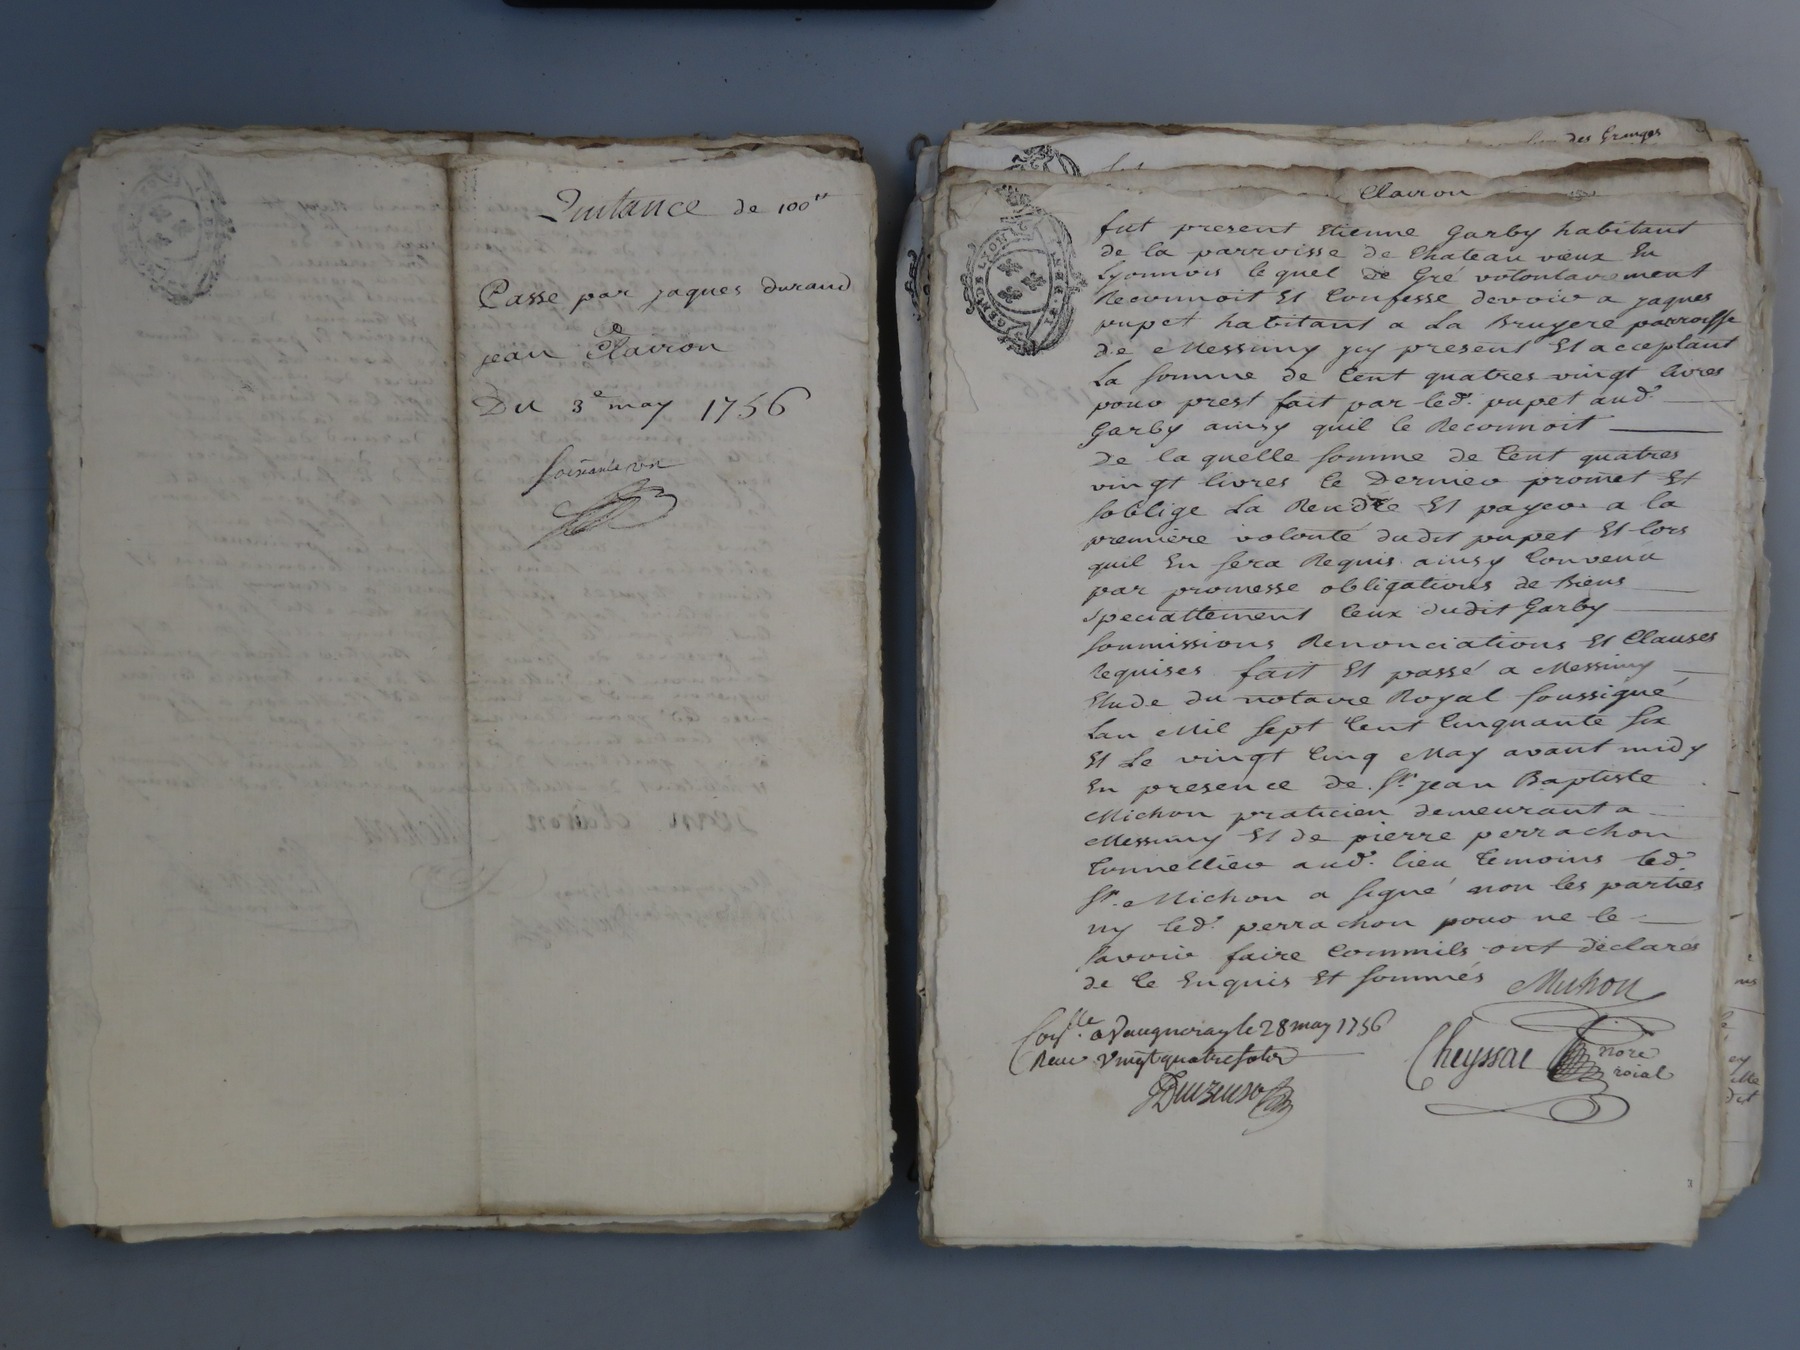 Quitance de 100tt
Passé par jaques durand
a
jean Clairon
Du 3e may 1756
soixante un
des Granges
Clairon
GEN DE LYON
fut present Etienne Garby habitant
de la parroisse de Chateau vieux En
Lyonnois lequel de Gré volontairement
Reconnoit Et Confesse devoir a jaques
pupet habitant a La Bruyere parroisse
de Messimy jcy present Et acceptant
La somme de Cent quatres vingt livres
pour prest fait par led. pupet aud.
Garby ainsy quil le Reconnoit
de la quelle somme de Cent quatres
vingt livres le Dernier promet Et
soblige La Rendre Et payer a la
premiere volonté dudit pupet Et lors
quil En sera Requis ainsy Convenu
par promesse obligations de Biens
specialtement Ceux dudit Garby
soumissions Renonciations Et Clauses
Requises fait Et passé a Messimy
Etude du notaire Royal soussigné
Lan Mil sept Cent Cinquante six
Et Le vingt Cinq May avant midy
En presence de Sr. jean Baptiste
Michon praticien demeurant a
Messimy Et de pierre perrachon
Tonnellier aud. lieu temoins led.
Sr. Michon a signé non les parties
ny led. perrachon pour ne le
savoir faire Commils ont déclarés
de Ce Enquis Et sommés Michon
Conlle a Vaugneray le 28 may 1756
Receu vingt quatre sols
Cheyssac nore
roial